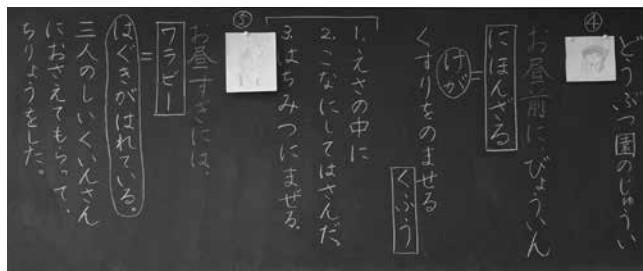 ④
どうぶつ園のじゅうい
お昼前に、びょういん
にほんざる
＝
けが
くすりをのませる
くふう
1.えさの中に
2.こなにしてはさんだ。
3.はちみつにまぜる。
⑤
お昼すぎには、
ワラビー
＝
はぐきがはれている。
三人のしいくいんさん
におさえてもらって、
ちりょうをした。